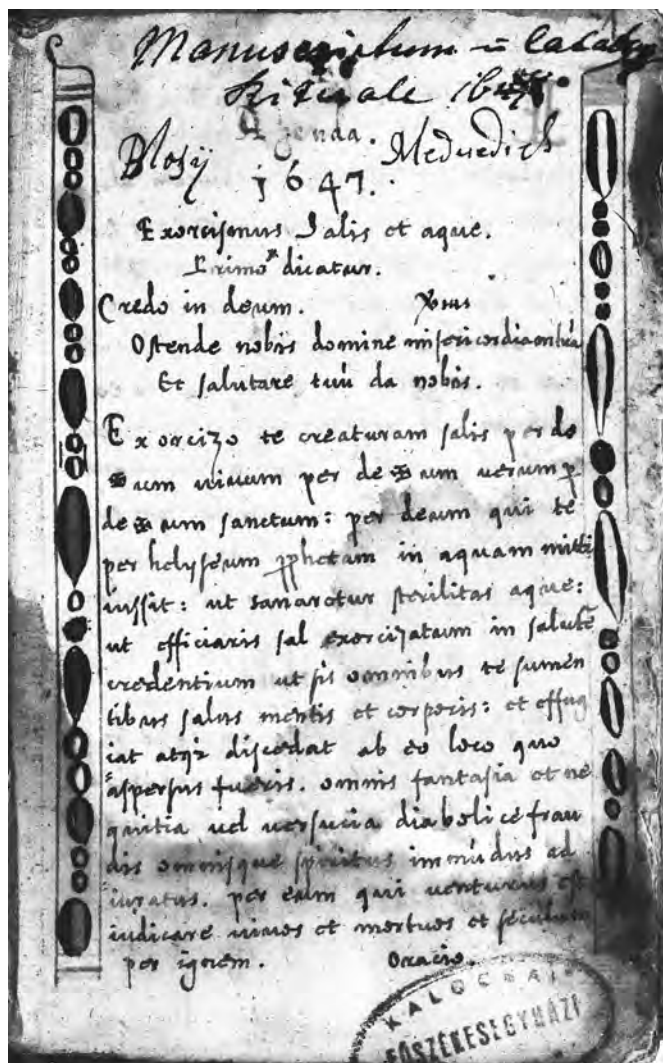 Manuscriptum
Rituale
Agenda.
Blosÿ Meduedich
1647.
Exorcismus Salis et aque.
Primo dicatur.
Credo in deum.
Ostende nobis domine misericordiam tuã
Et salutare tuũ da nobis.
Exorcizo te creaturam salis per de
✠ um uiuum per de ✠ um uerum ꝑ
de ✠ um sanctum: per deum qui te
per helyseum ꝓphetam in aquam mitti
iussit: ut sanaretur sterilitas aque:
ut efficiaris sal exorcizatum in salutẽ
credentium ut sis omnibus te sumen
tibus salus mentis et corporis: et effug
iat atqꝫ discedat ab eo loco quo
aspersus fueris. omnis fantasia et ne
quitia uel uersucia diabolice frau
dis omnisque spiritus immũdus ad
iuratus. per eum qui uenturus est
iudicare uiuos et mortuos et seculum
per ignem. Oracio.
KALOCSAI
FŐSZÉKESEGYHÁZI